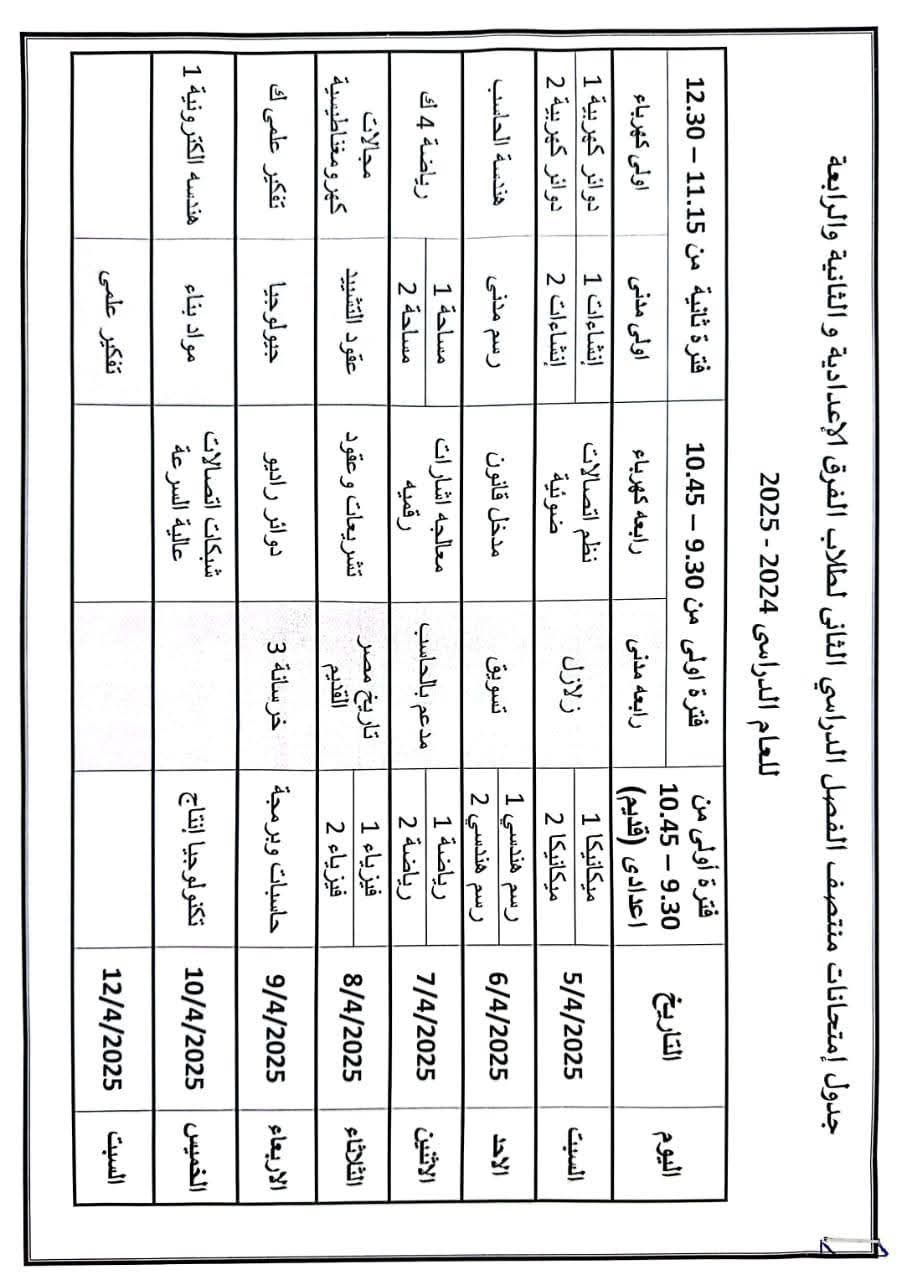 جدول إمتحانات منتصف الفصل الدراسي الثانى لطلاب الفرق الإعدادية و الثانية والرابعة
للعام الدراسى 2024 - 2025
اليوم
التاريخ
فترة أولى من
9.30 – 10.45
اعدادى (قديم)
فترة اولى من 9.30 – 10.45
رابعه مدنى
رابعه كهرباء
فترة ثانية من 11.15 – 12.30
اولى مدنى
اولى كهرباء
السبت
5/4/2025
ميكانيكا 1
ميكانيكا 2
زلازل
نظم اتصالات
ضوئية
إنشاءات 1
إنشاءات 2
دوائر كهربية 1
دوائر كهربية 2
الاحد
6/4/2025
رسم هندسي 1
رسم هندسي 2
تسويق
مدخل قانون
رسم مدنى
هندسة الحاسب
الاثنين
7/4/2025
رياضة 1
رياضة 2
مدعم بالحاسب
معالجه اشارات
رقميه
مساحة 1
مساحة 2
رياضة 4 ك
الثلاثاء
8/4/2025
فيزياء 1
فيزياء 2
تاريخ مصر
القديم
تشريعات وعقود
عقود التشييد
مجالات
كهرومغناطيسية
الاربعاء
9/4/2025
حاسبات وبرمجة
خرسانة 3
دوائر راديو
جيولوجيا
تفكير علمى ك
الخميس
10/4/2025
تكنولوجيا إنتاج
شبكات اتصالات
عالية السرعة
مواد بناء
هندسه الكترونية 1
السبت
12/4/2025
تفكير علمى